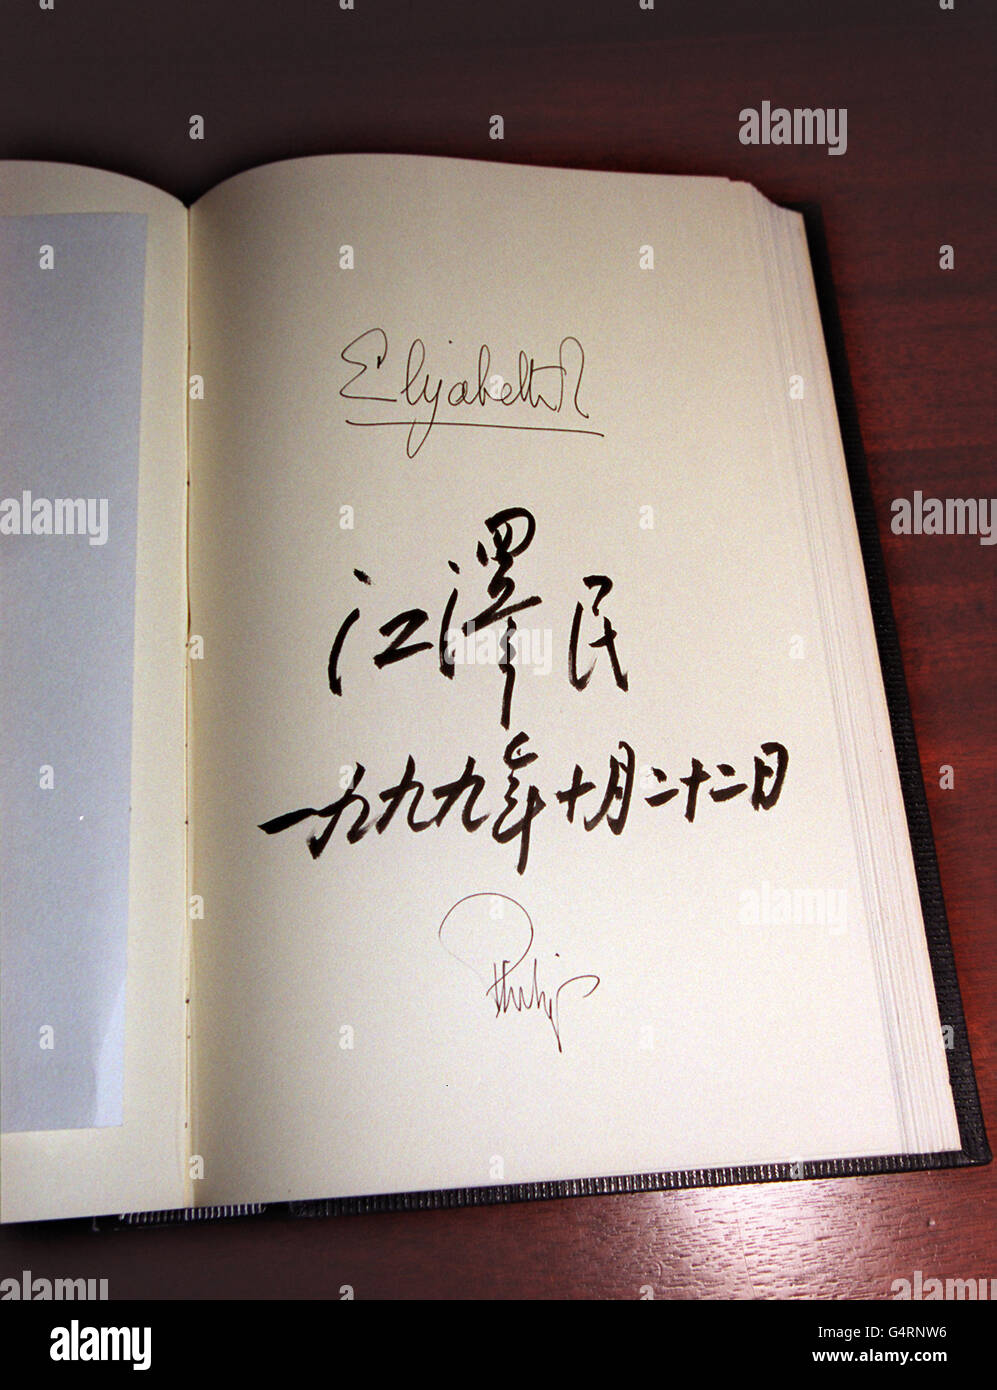 Elizabeth R
江澤民
一九九九年十月二十二日
Philip
alamy
alamy
Image ID: G4RNW6
www.alamy.com